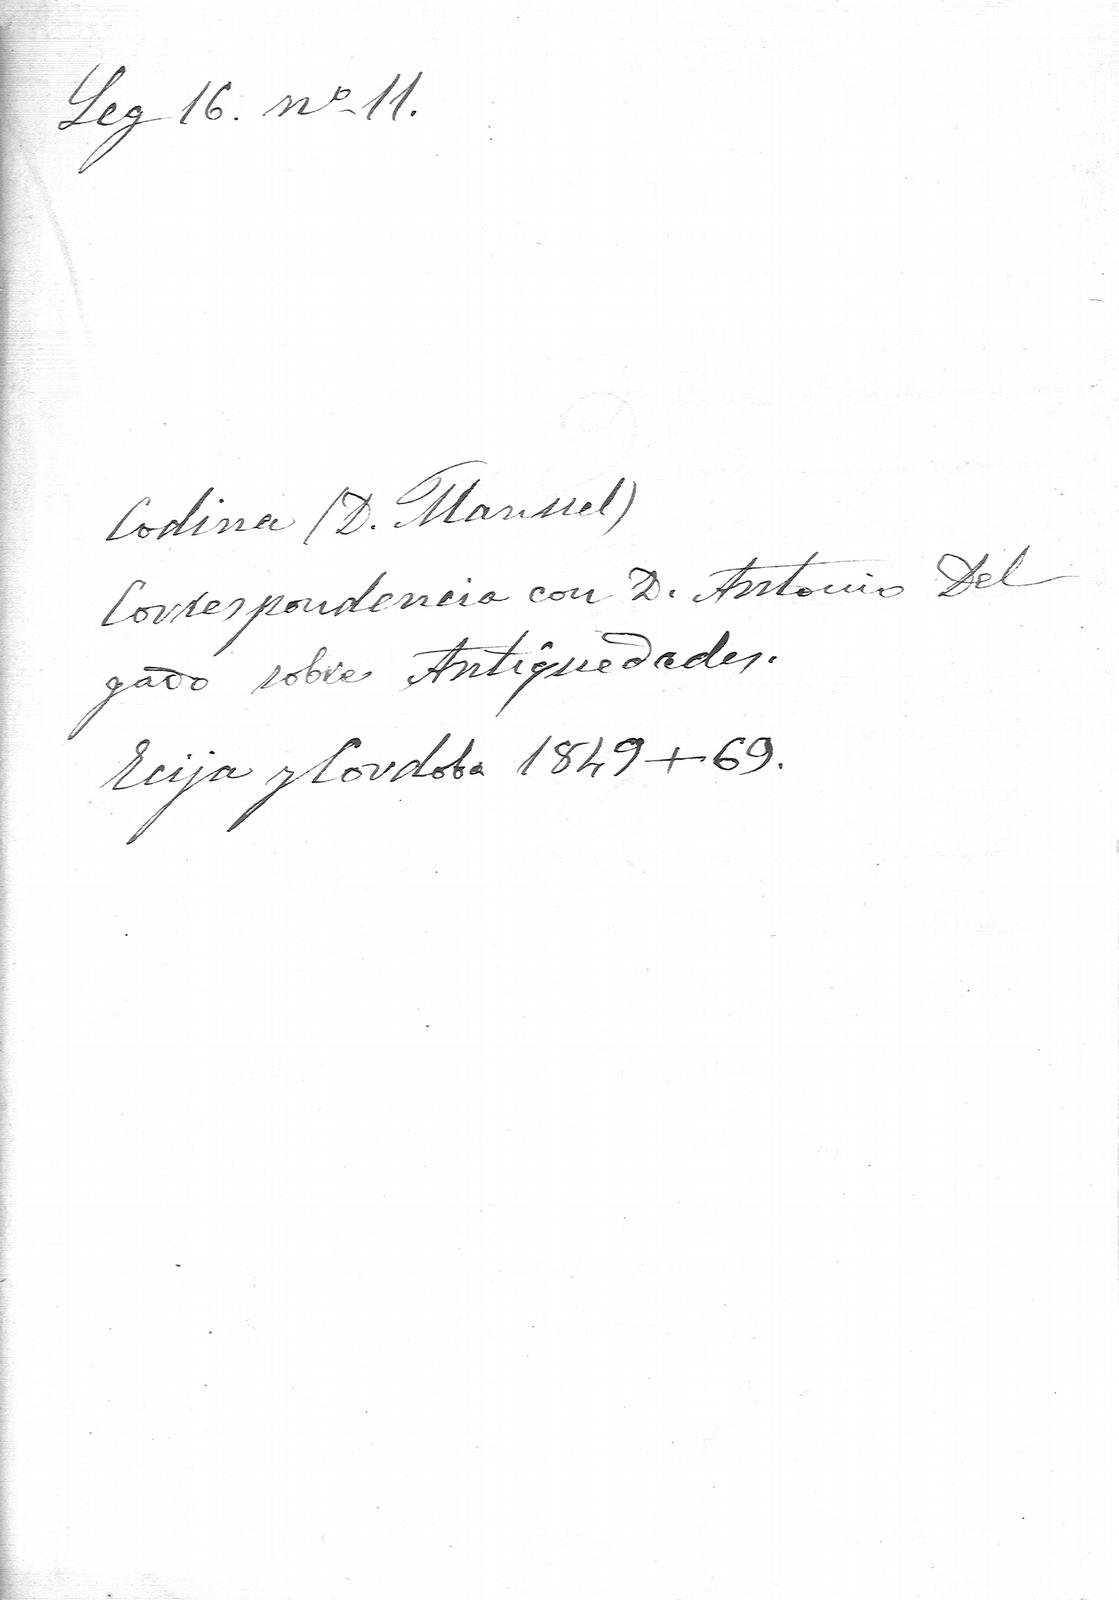 Leg 16. nº 11.
Codina (D. Manuel)
Correspondencia con D. Antonio Del
gado sobre Antigüedades.
Ecija y Cordoba 1849 + 69.